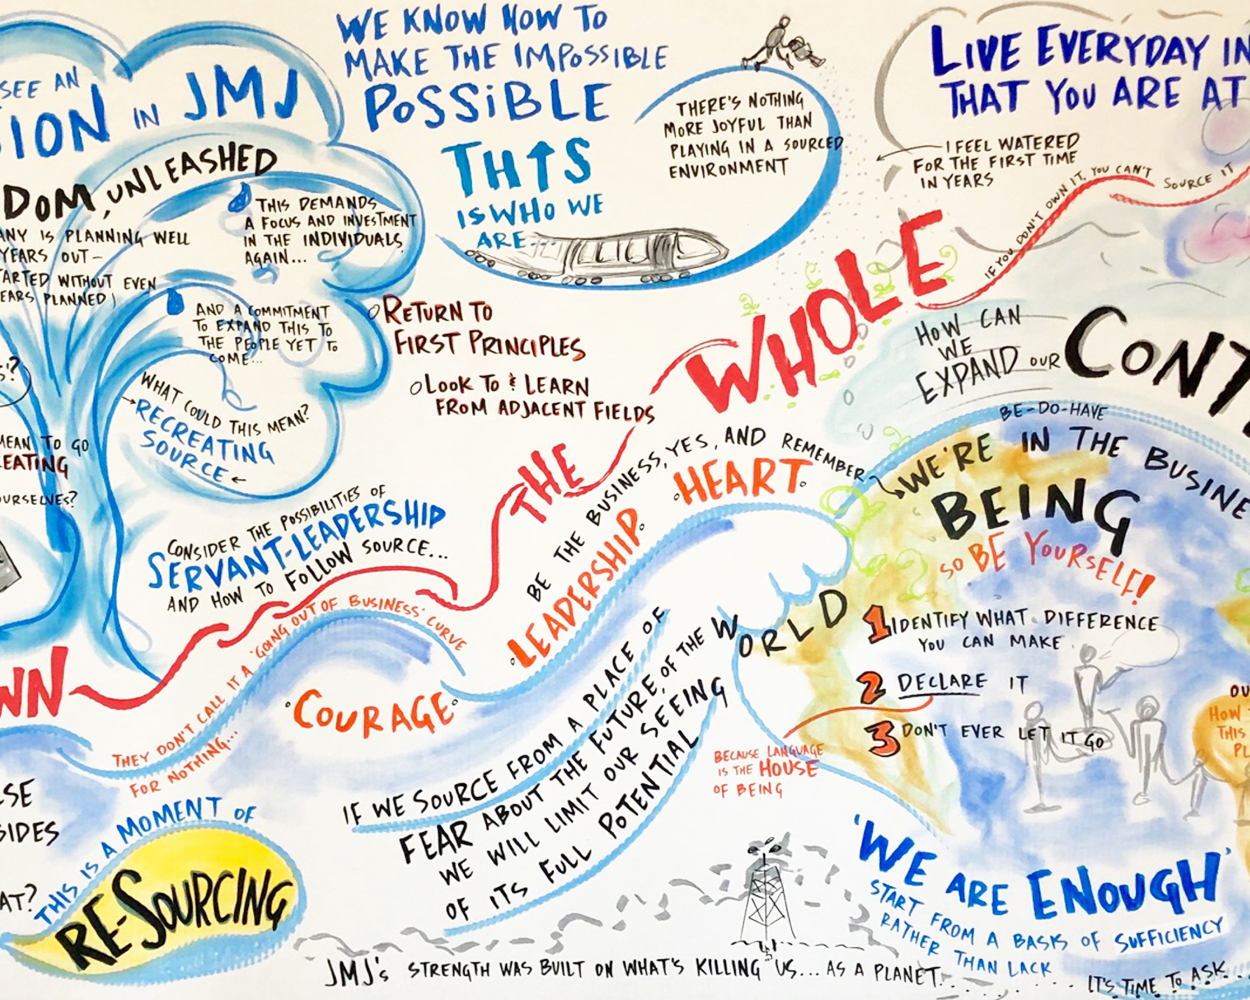 SEE AN
ION IN JMJ
DOM, UNLEASHED
ANY IS PLANNING WELL
YEARS OUT-
TARTED WITHOUT EVEN
EARS PLANNED)
THIS DEMANDS
A FOCUS AND INVESTMENT
IN THE INDIVIDUALS
AGAIN...
AND A COMMITMENT
TO EXPAND THIS TO
THE PEOPLE YET TO
COME...
WHAT COULD THIS MEAN?
RECREATING
SOURCE
MEAN TO GO
EATING
OURSELVES?
WE KNOW HOW TO
MAKE THE IMPOSSIBLE
POSSIBLE
THIS
IS WHO WE
ARE...
THERE'S NOTHING
MORE JOYFUL THAN
PLAYING IN A SOURCED
ENVIRONMENT
LIVE EVERYDAY IN
THAT YOU ARE AT
I FEEL WATERED
FOR THE FIRST TIME
IN YEARS
IF YOU DON'T OWN IT, YOU CAN'T SOURCE IT
RETURN TO
FIRST PRINCIPLES
LOOK TO & LEARN
FROM ADJACENT FIELDS
WN
THE
WHOLE
HOW CAN
WE
EXPAND OUR
CONT
CONSIDER THE POSSIBILITIES OF
SERVANT-LEADERSHIP
AND HOW TO FOLLOW SOURCE...
THEY DON'T CALL IT A 'GOING OUT OF BUSINESS' CURVE
FOR NOTHING...
COURAGE
BE THE BUSINESS, YES, AND REMEMBER
LEADERSHIP
HEART
BE-DO-HAVE
WE'RE IN THE BUSINE
BEING
SO BE YOURSELF!
1 IDENTIFY WHAT DIFFERENCE
YOU CAN MAKE
2 DECLARE IT
3 DON'T EVER LET IT GO
BECAUSE LANGUAGE
IS THE HOUSE
OF BEING
OU
HOW
THIS
PL
IF WE SOURCE FROM A PLACE OF
FEAR ABOUT THE FUTURE OF THE WORLD
WE WILL LIMIT OUR SEEING
OF ITS FULL POTENTIAL
LSE
SIDES
AT?
THIS IS A MOMENT OF
RE-SOURCING
'WE ARE ENOUGH'
START FROM A BASIS OF SUFFICIENCY
RATHER THAN LACK
JMJ's STRENGTH WAS BUILT ON WHAT'S KILLING US... AS A PLANET.......
IT'S TIME TO ASK...